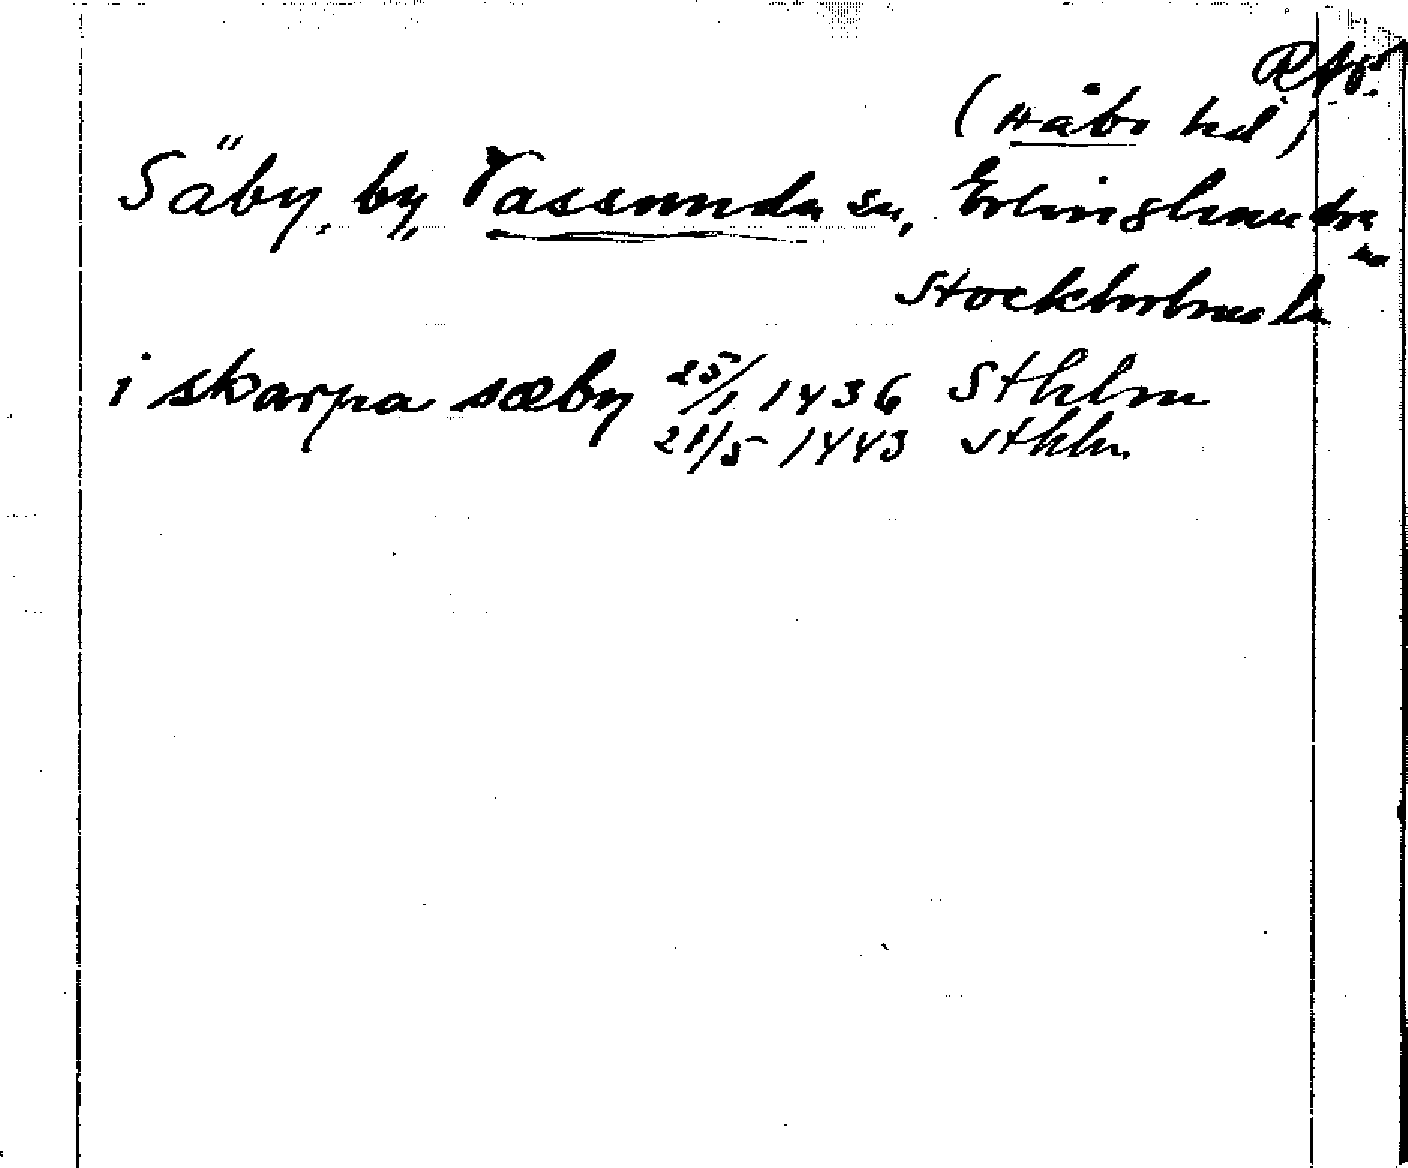 (Håbo hd)
Säby, by, Vassunda sn, Erlinghundra
Stockholms län
i skarpa sæby 25/1 1436 Sthlm
21/5 1443 Sthlm